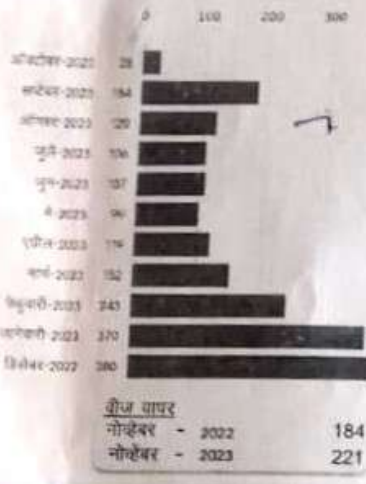 0 100 200 300
ऑक्टोबर-2023 28
सप्टेंबर-2023 184
ऑगस्ट-2023 120
जुलै-2023 106
जून-2023
मे-2023
एप्रील-2023
मार्च-2023 152
फेब्रुवारी-2023 243
जानेवारी-2023 370
डिसेंबर-2022 380
वीज वापर
नोव्हेंबर - 2022 184
नोव्हेंबर - 2023 221